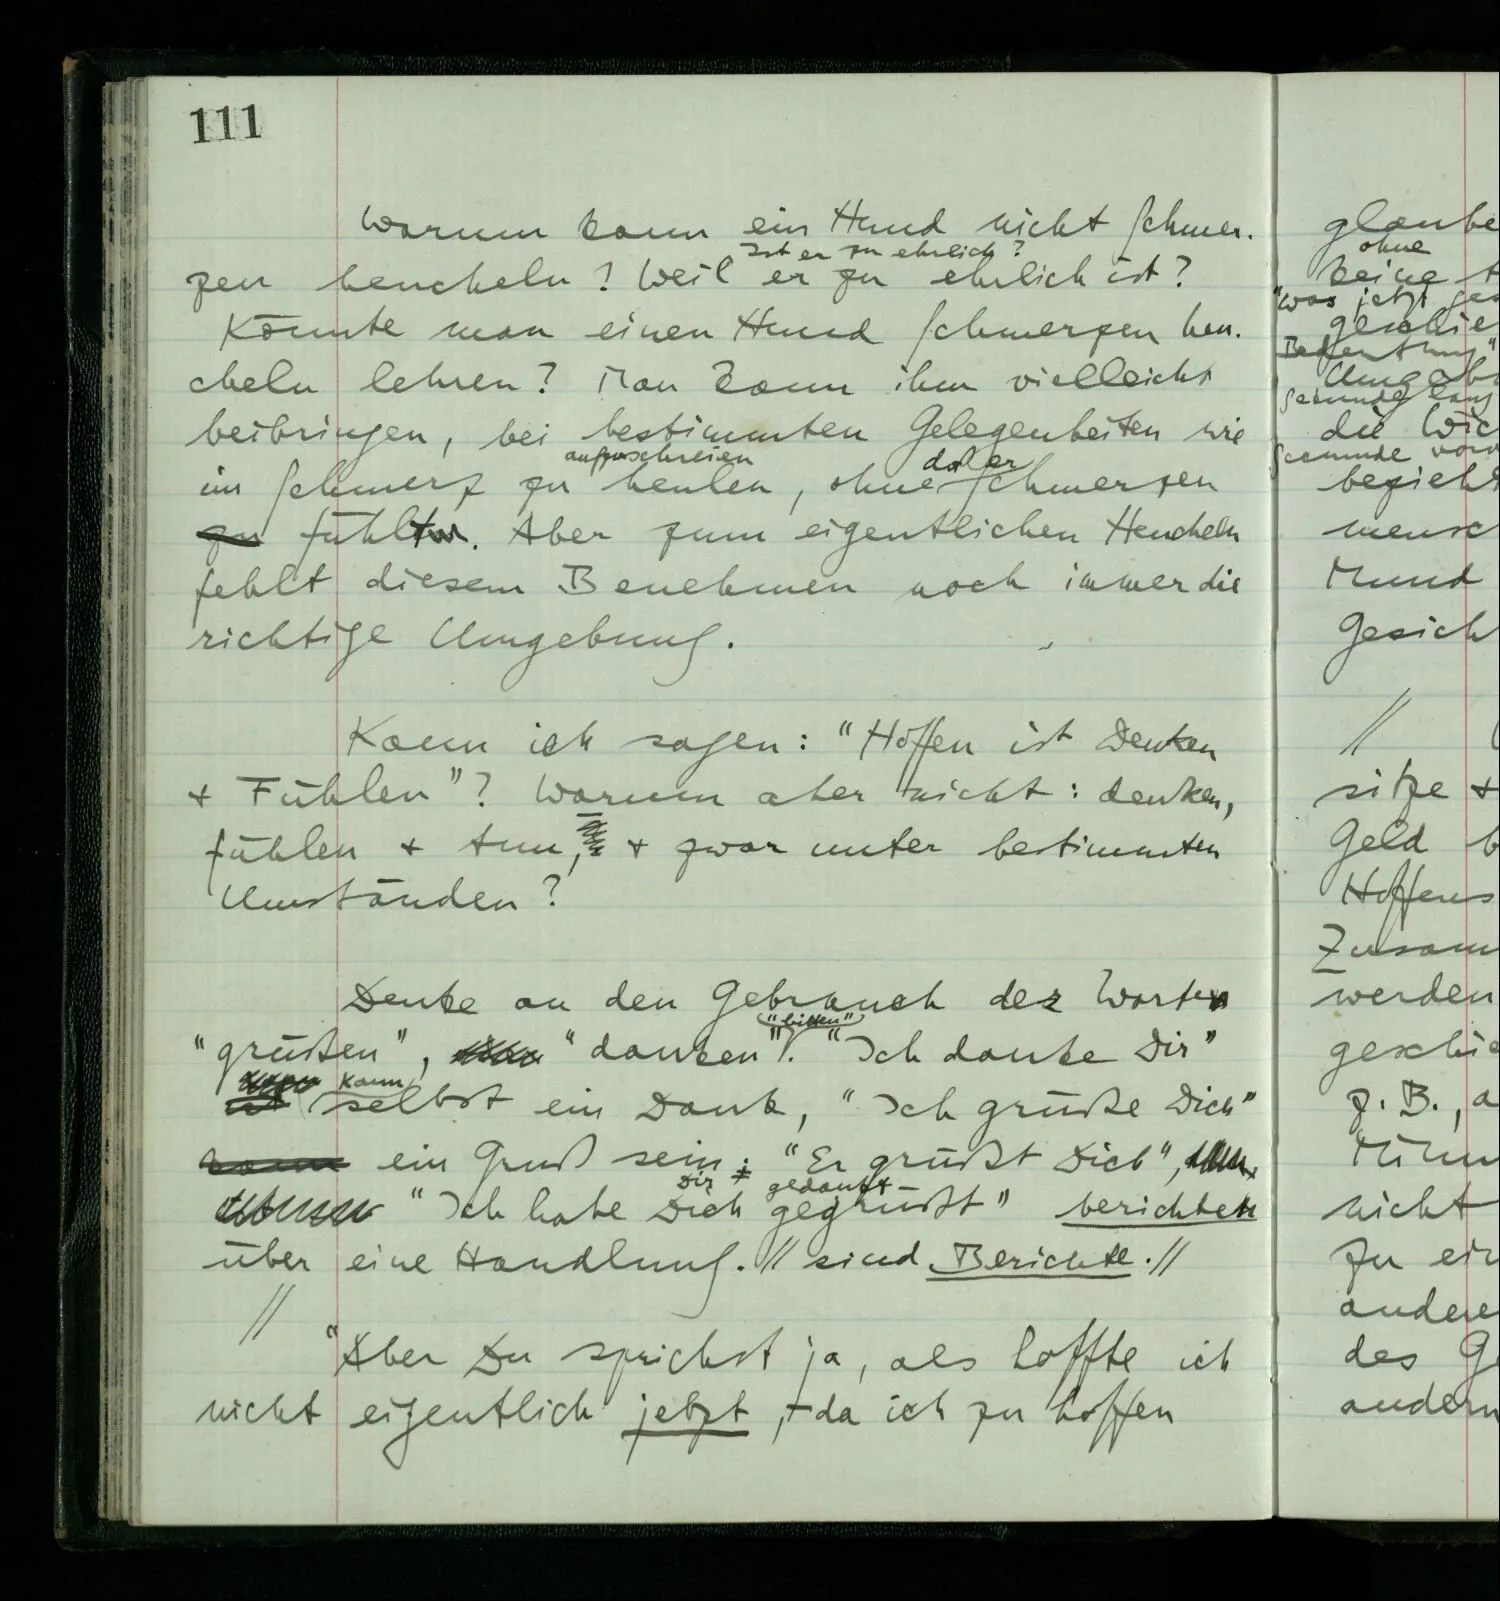 111
Warum kann ein Hund nicht Schmer-
Ist er zu ehrlich?
zen heucheln? Weil er zu ehrlich ist?
Könnte man einen Hund Schmerzen heu-
cheln lehren? Man kann ihm vielleicht
beibringen, bei bestimmten Gelegenheiten wie
aufzuschreien dabei
im Schmerz zu heulen, ohne Schmerzen
zu fühlen. Aber zum eigentlichen Heucheln
fehlt diesem Benehmen noch immer die
richtige Umgebung.
Kann ich sagen: "Hoffen ist Denken
+ Fühlen"? Warum aber nicht: denken,
fühlen + tun, + zwar unter bestimmten
Umständen?
Denke an den Gebrauch der Worte
"bitten"
"grüßen", "danken". "Ich danke Dir"
kann
selbst ein Dank, "Ich grüße Dich"
kann ein Gruß sein; "Er grüßt Dich",
Dir gedankt
"Ich habe Dich gegrüßt" berichten
über eine Handlung. // sind Berichte. //
//
"Aber Du sprichst ja, als hoffte ich
nicht eigentlich jetzt, – da ich zu hoffen
glaube
ohne
keine
"was jetzt
Bedeutung"
die
bezieht
mensch
Mund
Gesich
//
sitze +
Geld b
Hoffens
Zusam
werden
geschie
z.B., a
nicht
zu ein
andere
des Ge
andern